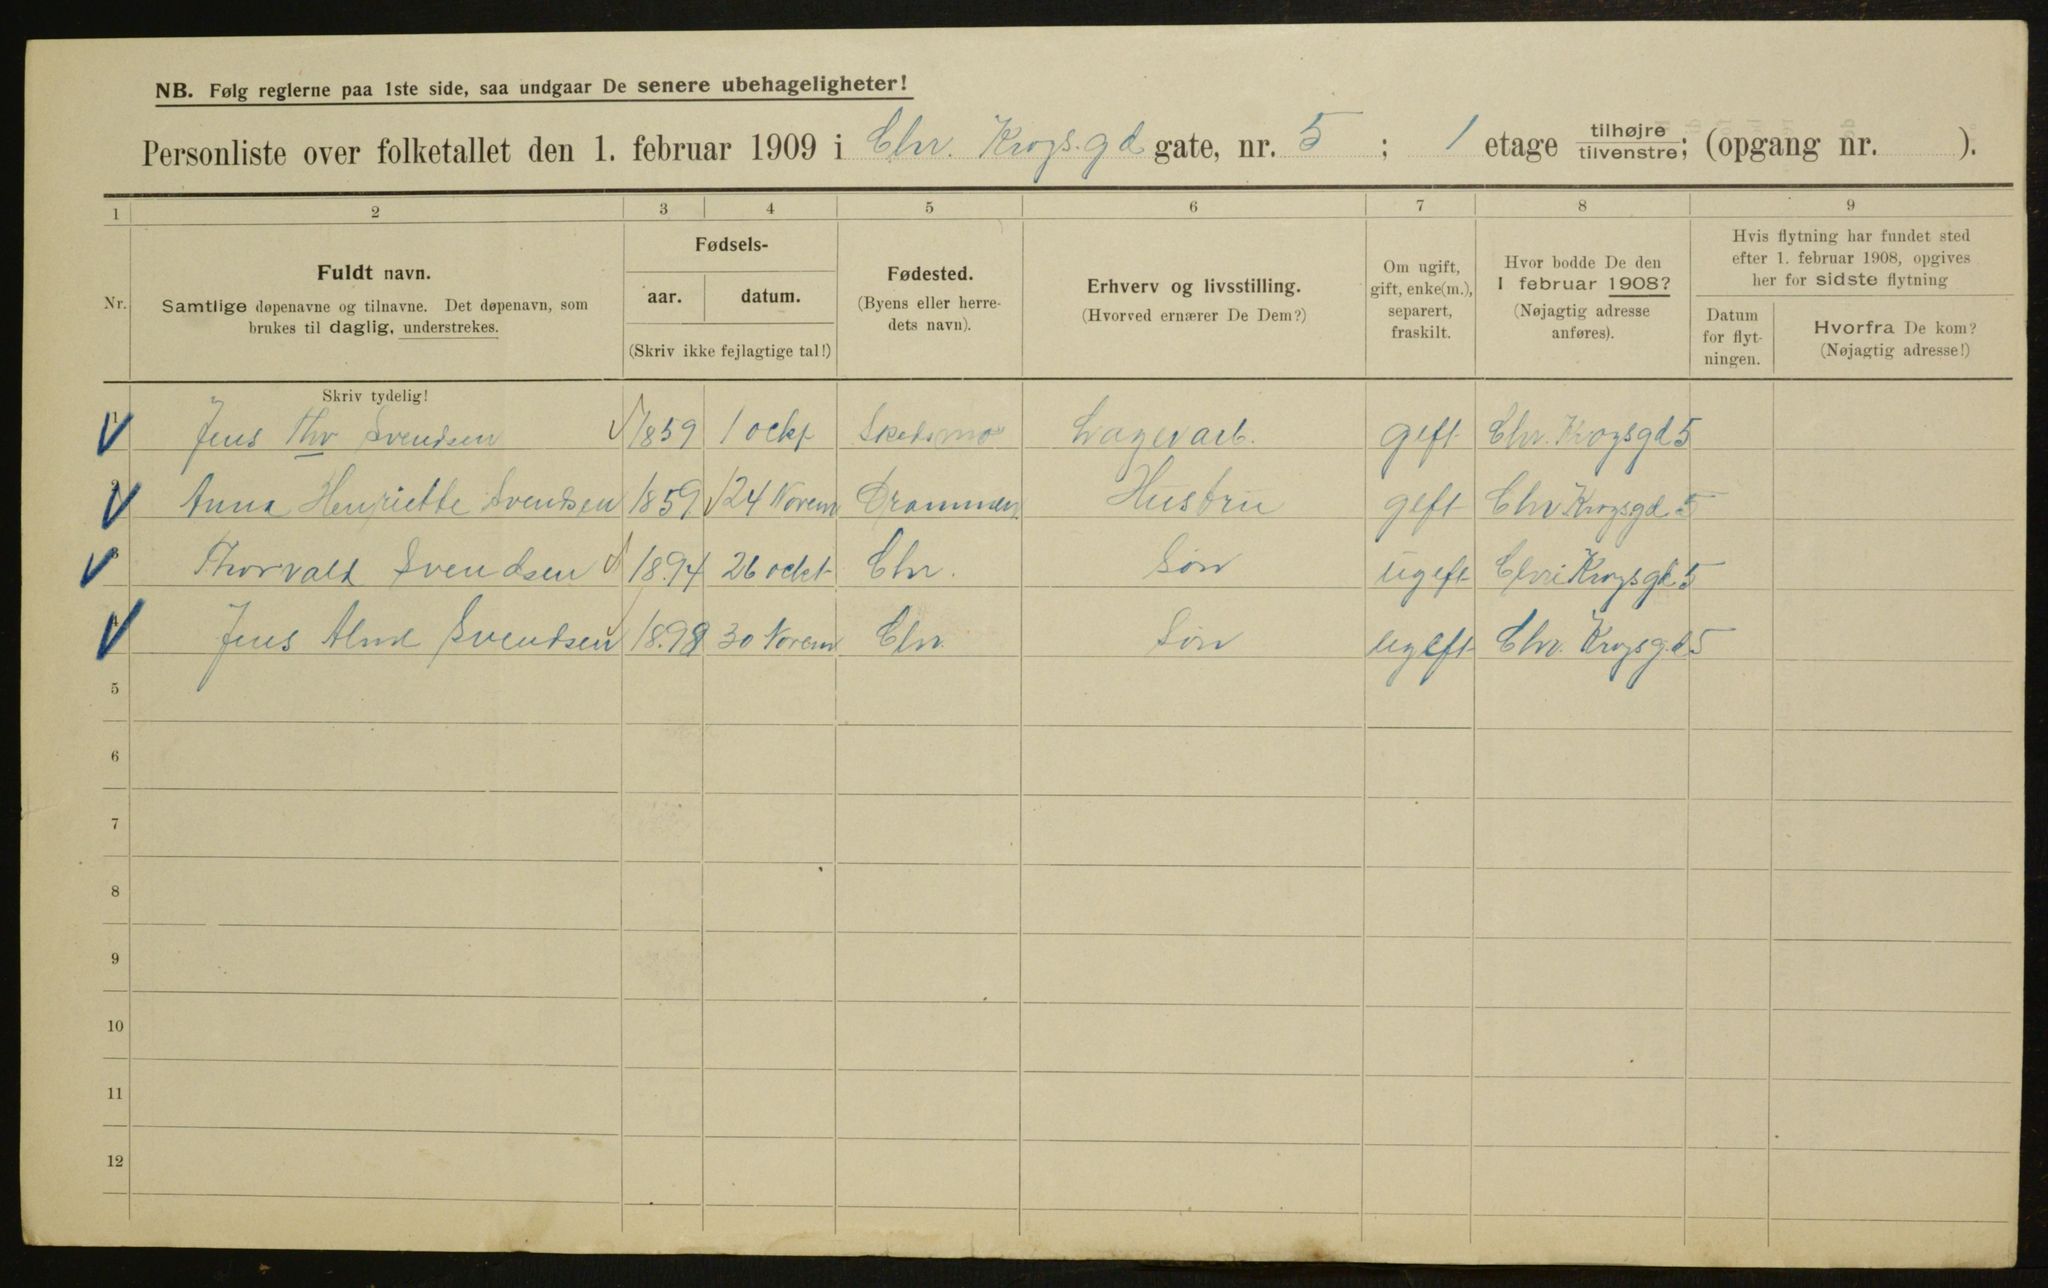 NB. Følg reglerne paa 1ste side, saa undgaar De senere ubehageligheter!
Personliste over folketallet den 1. februar 1909 i Chr. Krogs.gd gate, nr. 5 ; 1 etage tilhøjre tilvenstre; (opgang nr. ).
1 2 3 4 5 6 7 8 9
Nr.
Fuldt navn.
Samtlige døpenavne og tilnavne. Det døpenavn, som
brukes til daglig, understrekes.
Fødsels-
aar. datum.
(Skriv ikke fejlagtige tal!)
Fødested.
(Byens eller herre-
dets navn).
Erhverv og livsstilling.
(Hvorved ernærer De Dem?)
Om ugift,
gift, enke(m.),
separert,
fraskilt.
Hvor bodde De den
1 februar 1908?
(Nøjagtig adresse
anføres).
Hvis flytning har fundet sted
efter 1. februar 1908, opgives
her for sidste flytning
Datum
for flyt-
ningen.
Hvorfra De kom?
(Nøjagtig adresse!)
Skriv tydelig!
1 Jens Thv Svendsen 1859 1 ockt Skedsmo Lagerarb. gift Chr. Krogsgd 5
2 Anna Henriette Svendsen 1859 24 Novem Drammen Hustru gift Chr Krogsgd 5
3 Thorvald Svendsen 1894 26 ockt Chr. Søn ugift Chri Krogsgd 5
4 Jens Svendsen 1898 30 Novem Chr. Søn ugift Chr. Krogsgd 5
5
6
7
8
9
10
11
12